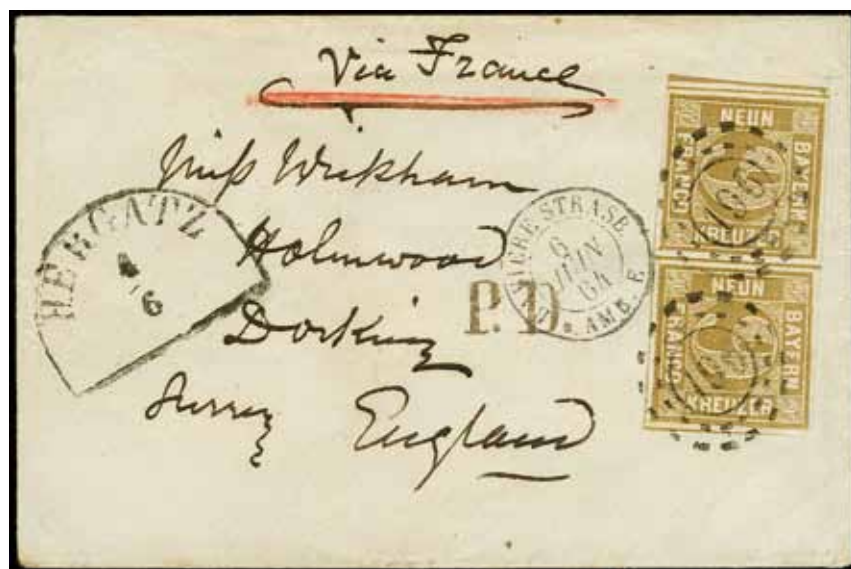 Via France
Miß Wickham
Holmwood
Dorking
Surrey
England
HERGATZ
4/6
P.D.
BIÈRE STRASB.
6
JUIN
64
2 AMB. E
NEUN
BAYERN
KREUZER
FRANCO
NEUN
BAYERN
KREUZER
FRANCO